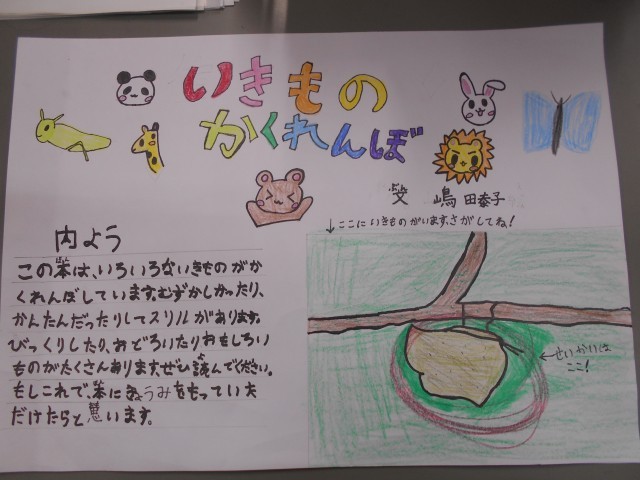 いきもの
かくれんぼ
文 嶋田泰子
↓ここにいきものがいます。さがしてね!
内よう
この本は、いろいろないきものがか
くれんぼしています。むずかしかったり、
かんたんだったりしてスリルがあります。
びっくりしたり、おどろいたりおもしろい
ものがたくさんあります。ぜひ読んでください。
もしこれで、本にきょうみをもっていた
だけたらと思います。
←せいかいは
ここ!